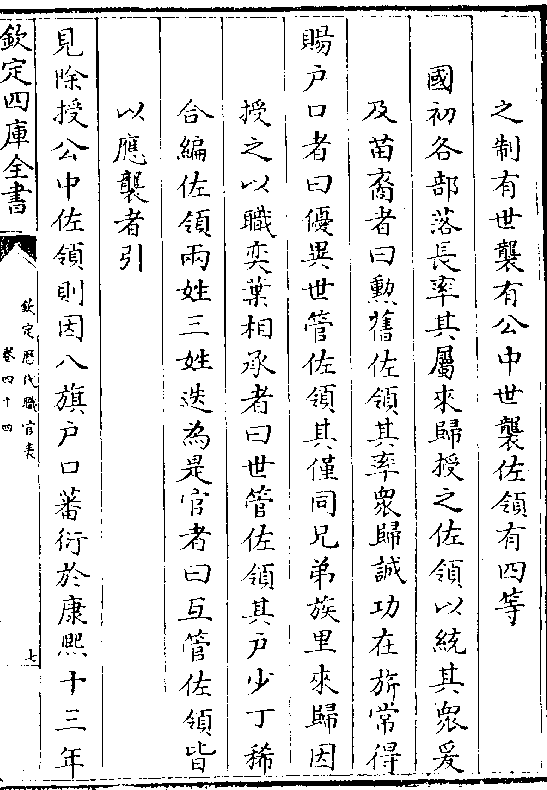 之制有世襲有公中世襲佐領有四等
國初各部落長率其屬來歸授之佐領以統其衆爰
及苗裔者曰勲舊佐領其率衆歸誠功在旂常得
賜戶口者曰優異世管佐領其僅同兄弟族里來歸因
授之以職奕葉相承者曰世管佐領其戶少丁稀
合編佐領兩姓三姓迭為是官者曰互管佐領皆
以應襲者引
見除授公中佐領則因八旗戶口蕃衍於康熙十三年
欽定四庫全書
欽定歷代職官表
卷四十四
七